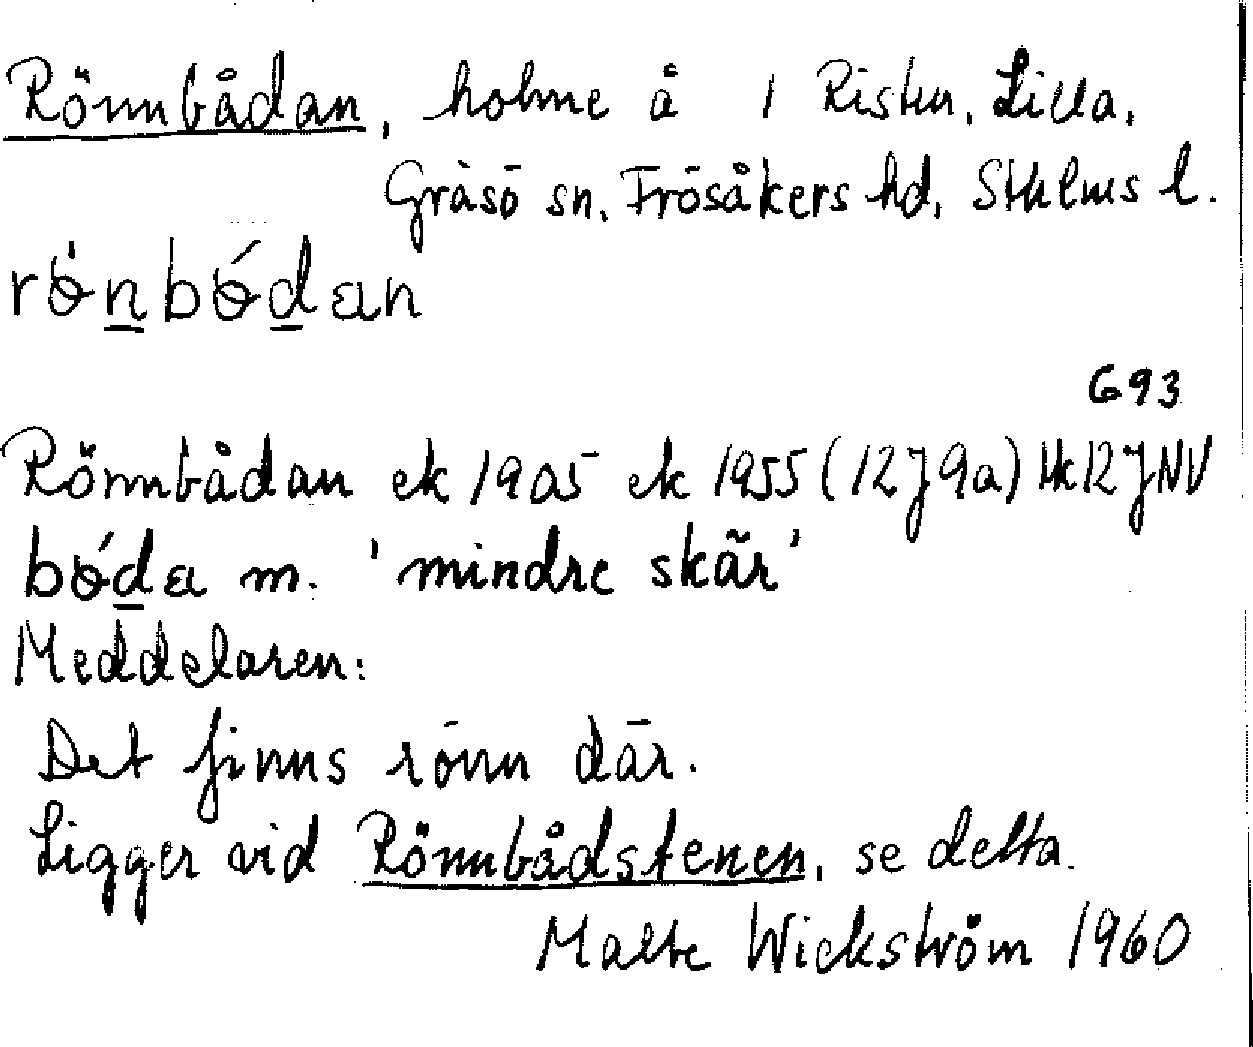 Rönnbådan, holme å 1 Risten, Lilla,
Gräsö sn, Frösåkers hd, Sthlms l.
rǿnbǿdan
693
Rönnbådan ek 1905 ek 1955 (12J9a) Hk 12J NV
bǿda m. 'mindre skär'
Meddelaren:
Det finns rönn där.
Ligger vid Rönnbådstenen, se detta.
Malte Wickström 1960